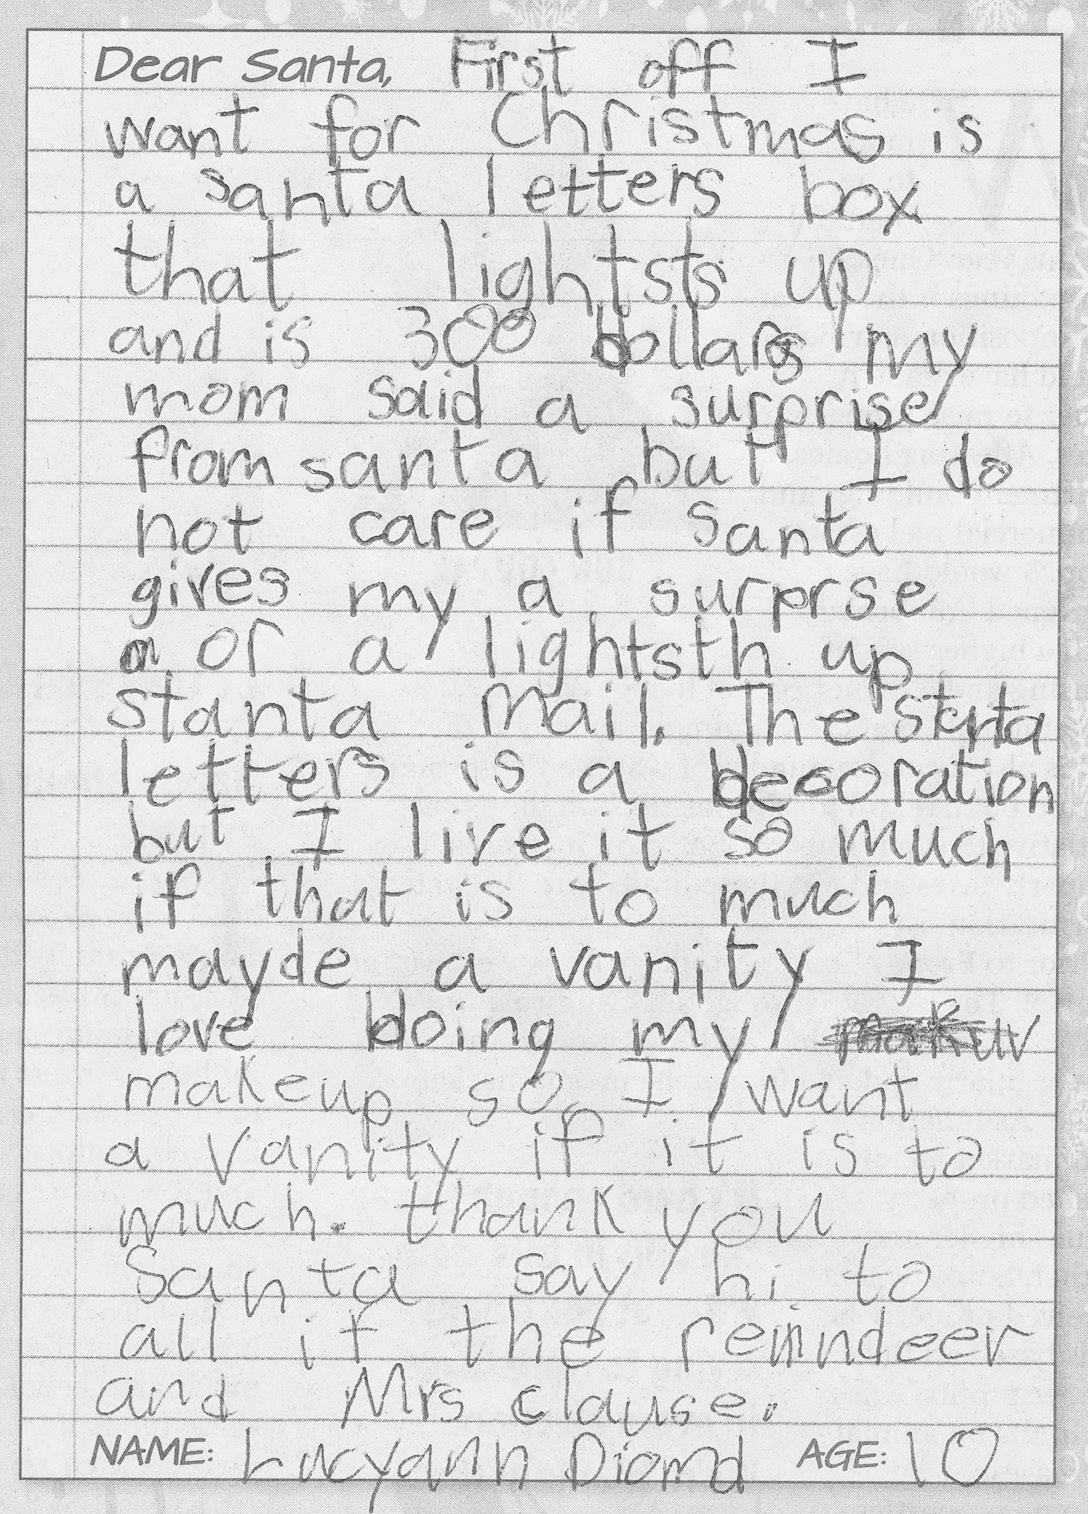 Dear Santa, First off I
want for Christmas is
a santa letters box
that lightsts up
and is 300 dollars my
mom said a surprise
from santa but I do
not care if santa
gives my a surprse
or a lightsth up
stanta mail. The stanta
letters is a decoration
but I live it so much
if that is to much
mayde a vanity I
love doing my
makeup so I want
a vanity if it is to
much. thank you
Santa say hi to
all if the remndeer
and Mrs clause.
NAME: Lucyann Diomd AGE: 10